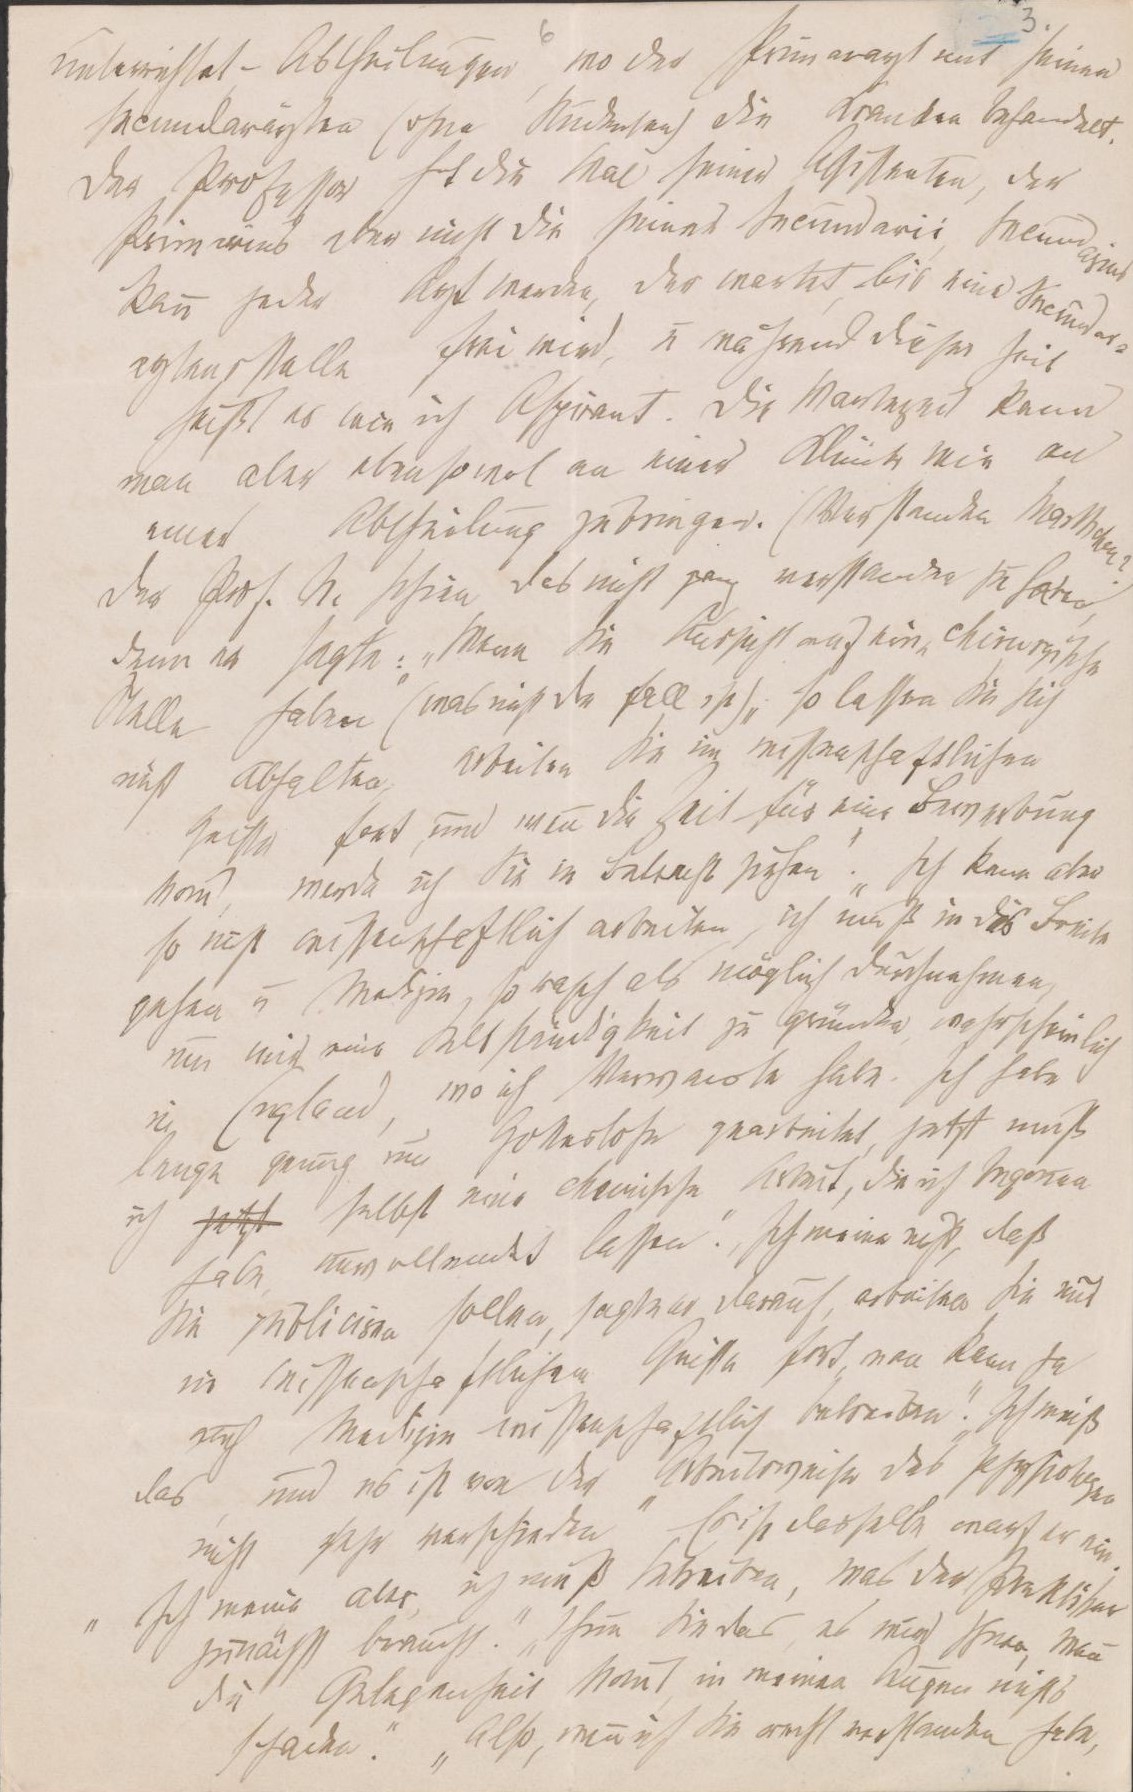 6
3.
unterrichtet – Abtheilungen, wo der Primararzt mit seinen
Secundarärzten (ohne Studenten) die Kranken behandelt.
Der Professor hat die Wal seiner Assistenten, der
Primarius aber nicht die seiner Secundarii, Secundarius
kann jeder Arzt werden, der wartet, bis eine Secundar-
arztensstelle frei wird, u während dieser Zeit
heißt er wie ich Aspirant. Die Wartezeit kann
man aber ebensowol an einer Klinik wie an
einer Abtheilung zubringen. (Verstanden Marthchen?)
Der Prof. N. schien das nicht ganz verstanden zu haben,
denn er sagte: „Wenn Sie Aussicht auf eine „chirurgische
Stelle haben" (was nicht der Fall ist) „so lassen Sie sich
nicht abhalten, arbeiten Sie im wissenschaftlichen
Geiste fort, und wenn die Zeit für eine Bewerbung
komt, werde ich Sie in Betracht ziehen". „Ich kann aber
so nicht wissenschaftlich arbeiten, ich muß in die Breite
gehen u Medizin, so rasch als möglich durchnehmen,
um mir eine Selbständigkeit zu gründen, wahrscheinlich
in England, wo ich Verwandte habe. Ich habe
lange genug um Gotteslohn gearbeitet, jetzt muß
ich jetzt selbst eine chemische Arbeit, die ich begonnen
habe, unvollendet lassen". „Ich meine nicht, daß
Sie publiciren sollen, sagte er darauf, arbeiten Sie nur
im wissenschaftlichen Geiste fort, man kann ja
auch Medizin wissenschaftlich betreiben". „Ich weiß
das, und es ist von der Arbeitsweise des Physiologen
nicht sehr verschieden" Es ist dasselbe, warf er ein.
„Ich meine aber, ich muß betreiben, was der Praktiker
zunächst braucht." „Thun Sie das, es wird Ihnen, wenn
die Gelegenheit komt, in meinen Augen nichts
schaden." „Also, wenn ich Sie recht verstanden habe,